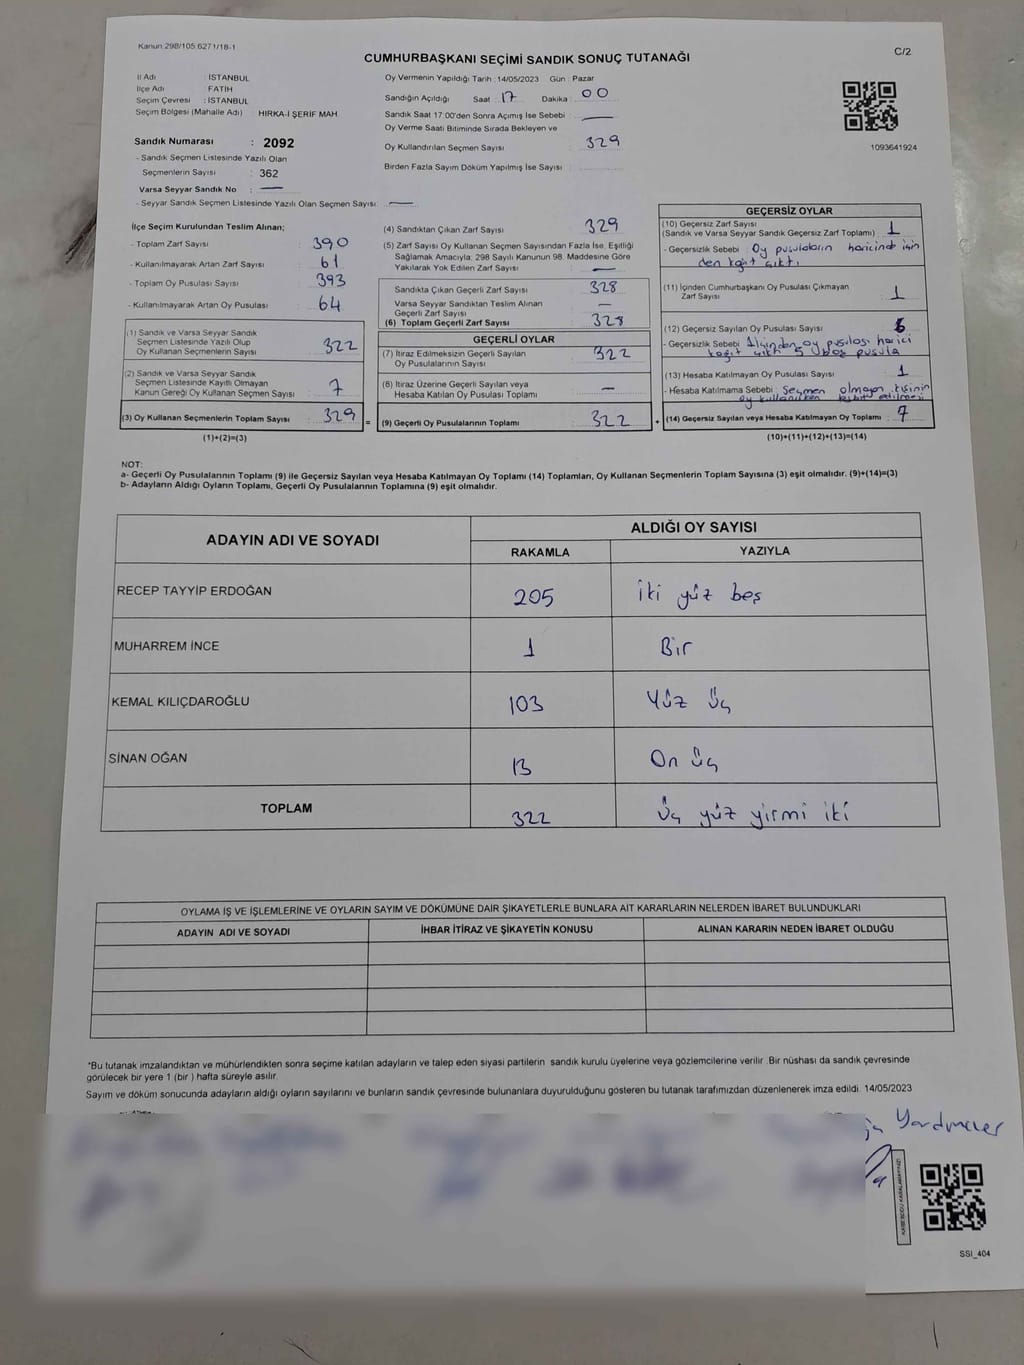 Kanun 298/105.6271/18-1
CUMHURBAŞKANI SEÇİMİ SANDIK SONUÇ TUTANAĞI
C/2
İl Adı : İSTANBUL
İlçe Adı : FATİH
Seçim Çevresi : İSTANBUL
Seçim Bölgesi (Mahalle Adı) HIRKA-İ ŞERİF MAH
Sandık Numarası : 2092
- Sandık Seçmen Listesinde Yazılı Olan
Seçmenlerin Sayısı : 362
Varsa Seyyar Sandık No : —
- Seyyar Sandık Seçmen Listesinde Yazılı Olan Seçmen Sayısı : —
Oy Vermenin Yapıldığı Tarih : 14/05/2023 Gün : Pazar
Sandığın Açıldığı Saat : 17 Dakika : 00
Sandık Saat 17:00'den Sonra Açımış İse Sebebi : —
Oy Verme Saati Bitiminde Sırada Bekleyen ve
Oy Kullandırılan Seçmen Sayısı : 329
Birden Fazla Sayım Döküm Yapılmış İse Sayısı :
1093641924
İlçe Seçim Kurulundan Teslim Alınan;
- Toplam Zarf Sayısı : 390
- Kullanılmayarak Artan Zarf Sayısı : 61
- Toplam Oy Pusulası Sayısı : 393
- Kullanılmayarak Artan Oy Pusulası : 64
(1) Sandık ve Varsa Seyyar Sandık
Seçmen Listesinde Yazılı Olup
Oy Kullanan Seçmenlerin Sayısı : 322
(2) Sandık ve Varsa Seyyar Sandık
Seçmen Listesinde Kayıtlı Olmayan
Kanun Gereği Oy Kullanan Seçmen Sayısı : 7
(3) Oy Kullanan Seçmenlerin Toplam Sayısı : 329
(1)+(2)=(3)
(4) Sandıktan Çıkan Zarf Sayısı : 329
(5) Zarf Sayısı Oy Kullanan Seçmen Sayısından Fazla İse, Eşitliği
Sağlamak Amacıyla; 298 Sayılı Kanunun 98. Maddesine Göre
Yakılarak Yok Edilen Zarf Sayısı : —
Sandıkta Çıkan Geçerli Zarf Sayısı : 328
Varsa Seyyar Sandıktan Teslim Alınan
Geçerli Zarf Sayısı : —
(6) Toplam Geçerli Zarf Sayısı : 328
GEÇERLİ OYLAR
(7) İtiraz Edilmeksizin Geçerli Sayılan
Oy Pusulalarının Sayısı : 322
(8) İtiraz Üzerine Geçerli Sayılan veya
Hesaba Katılan Oy Pusulası Toplamı : —
= (9) Geçerli Oy Pusulalarının Toplamı : 322
GEÇERSİZ OYLAR
(10) Geçersiz Zarf Sayısı
(Sandık ve Varsa Seyyar Sandık Geçersiz Zarf Toplamı) : 1
- Geçersizlik Sebebi : Oy pusulaların haricinde için
den kağıt çıktı
(11) İçinden Cumhurbaşkanı Oy Pusulası Çıkmayan
Zarf Sayısı : 1
(12) Geçersiz Sayılan Oy Pusulası Sayısı :
- Geçersizlik Sebebi : oy pusulası harici
kağıt çıktı 5 boş pusula
(13) Hesaba Katılmayan Oy Pusulası Sayısı : 1
- Hesaba Katılmama Sebebi : Seçmen olmayan kişinin
oy kullanırken
+ (14) Geçersiz Sayılan veya Hesaba Katılmayan Oy Toplamı : 7
(10)+(11)+(12)+(13)=(14)
NOT:
a- Geçerli Oy Pusulalarının Toplamı (9) ile Geçersiz Sayılan veya Hesaba Katılmayan Oy Toplamı (14) Toplamları, Oy Kullanan Seçmenlerin Toplam Sayısına (3) eşit olmalıdır. (9)+(14)=(3)
b- Adayların Aldığı Oyların Toplamı, Geçerli Oy Pusulalarının Toplamına (9) eşit olmalıdır.
ADAYIN ADI VE SOYADI
ALDIĞI OY SAYISI
RAKAMLA YAZIYLA
RECEP TAYYİP ERDOĞAN 205 iki yüz beş
MUHARREM İNCE 1 Bir
KEMAL KILIÇDAROĞLU 103 Yüz üç
SİNAN OĞAN 13 On üç
TOPLAM 322 Üç yüz yirmi iki
OYLAMA İŞ VE İŞLEMLERİNE VE OYLARIN SAYIM VE DÖKÜMÜNE DAİR ŞİKAYETLERLE BUNLARA AİT KARARLARIN NELERDEN İBARET BULUNDUKLARI
ADAYIN ADI VE SOYADI İHBAR İTİRAZ VE ŞİKAYETİN KONUSU ALINAN KARARIN NEDEN İBARET OLDUĞU
*Bu tutanak imzalandıktan ve mühürlendikten sonra seçime katılan adayların ve talep eden siyasi partilerin sandık kurulu üyelerine veya gözlemcilerine verilir. Bir nüshası da sandık çevresinde
görülecek bir yere 1 (bir ) hafta süreyle asılır.
Sayım ve döküm sonucunda adayların aldığı oyların sayılarını ve bunların sandık çevresinde bulunanlara duyurulduğunu gösteren bu tutanak tarafımızdan düzenlenerek imza edildi. 14/05/2023
SSI_404